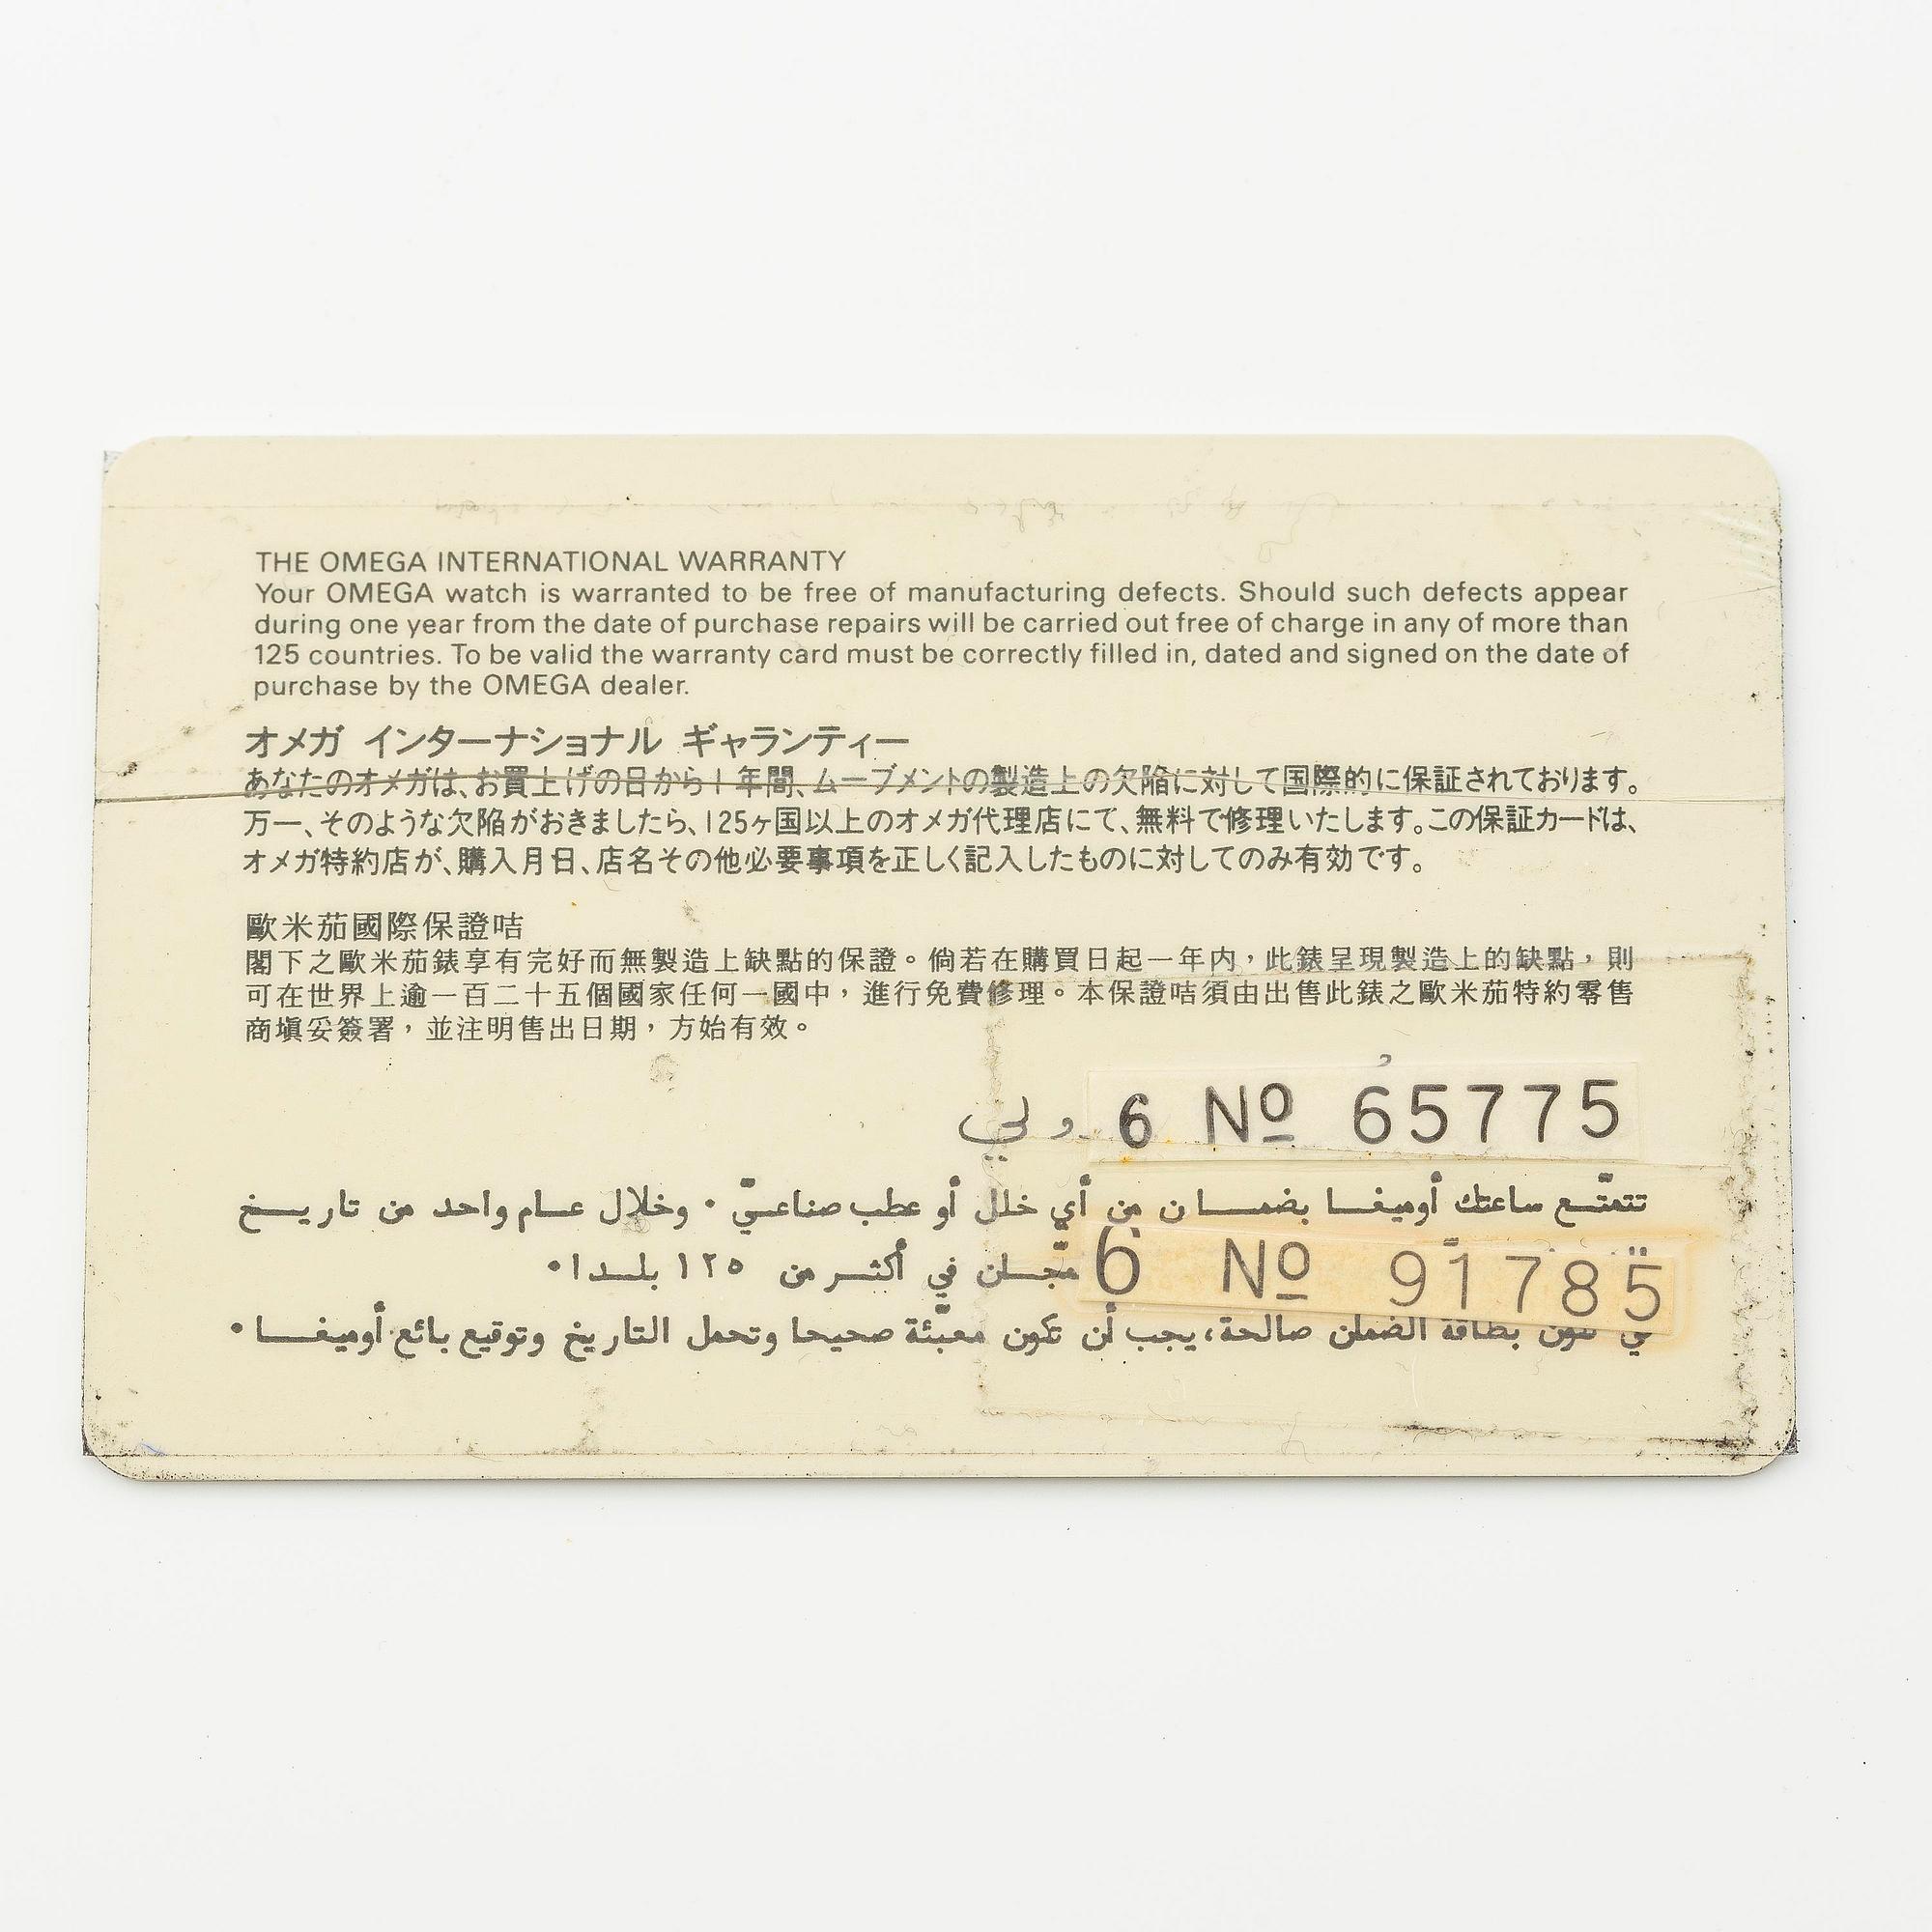 THE OMEGA INTERNATIONAL WARRANTY
Your OMEGA watch is warranted to be free of manufacturing defects. Should such defects appear
during one year from the date of purchase repairs will be carried out free of charge in any of more than
125 countries. To be valid the warranty card must be correctly filled in, dated and signed on the date of
purchase by the OMEGA dealer.
オメガ インターナショナル ギャランティー
あなたのオメガは、お買上げの日から1年間、ムーブメントの製造上の欠陥に対して国際的に保証されております。
万一、そのような欠陥がおきましたら、125ヶ国以上のオメガ代理店にて、無料で修理いたします。この保証カードは、
オメガ特約店が、購入月日、店名その他必要事項を正しく記入したものに対してのみ有効です。
歐米茄國際保證咭
閣下之歐米茄錶享有完好而無製造上缺點的保證。倘若在購買日起一年内，此錶呈現製造上的缺點，則
可在世界上逾一百二十五個國家任何一國中，進行免費修理。本保證咭須由出售此錶之歐米茄特約零售
商塡妥簽署，並注明售出日期，方始有效。
6 Nº 65775
تتمتّع ساعتك أوميغا بضمان من أي خلل أو عطب صناعيّ . وخلال عام واحد من تاريخ
6 Nº 91785
في أكثر من ١٢٥ بلدا.
بطاقة الضمان صالحة، يجب أن تكون معبّئة صحيحا وتحمل التاريخ وتوقيع بائع أوميغا.